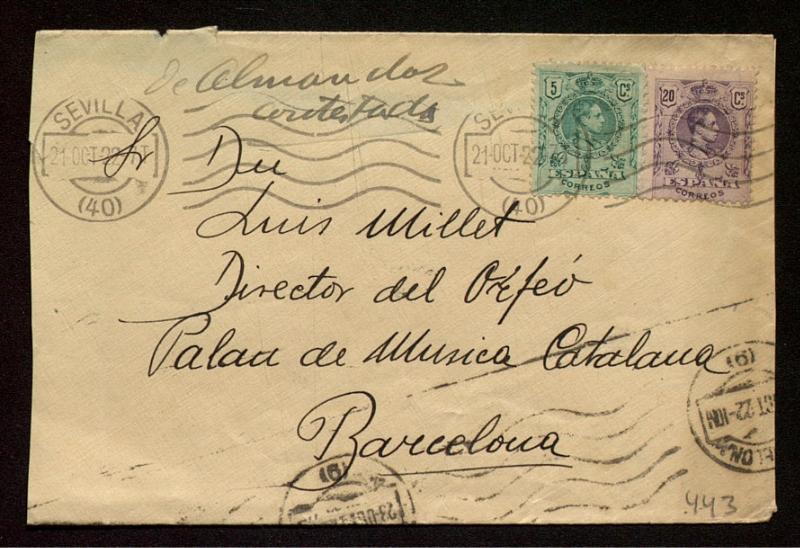 de Almandoz
contestada
SEVILLA
21·OCT·22·
(40)
21·OCT·22
(40)
5 Cs
CORREOS
20 Cs
CORREOS
Sr Du
Luis Millet
Director del Orfeó
Palau de Musica Catalana
Barcelona
(6)
CT 22·10
ELON
(6)
23·OCT
443